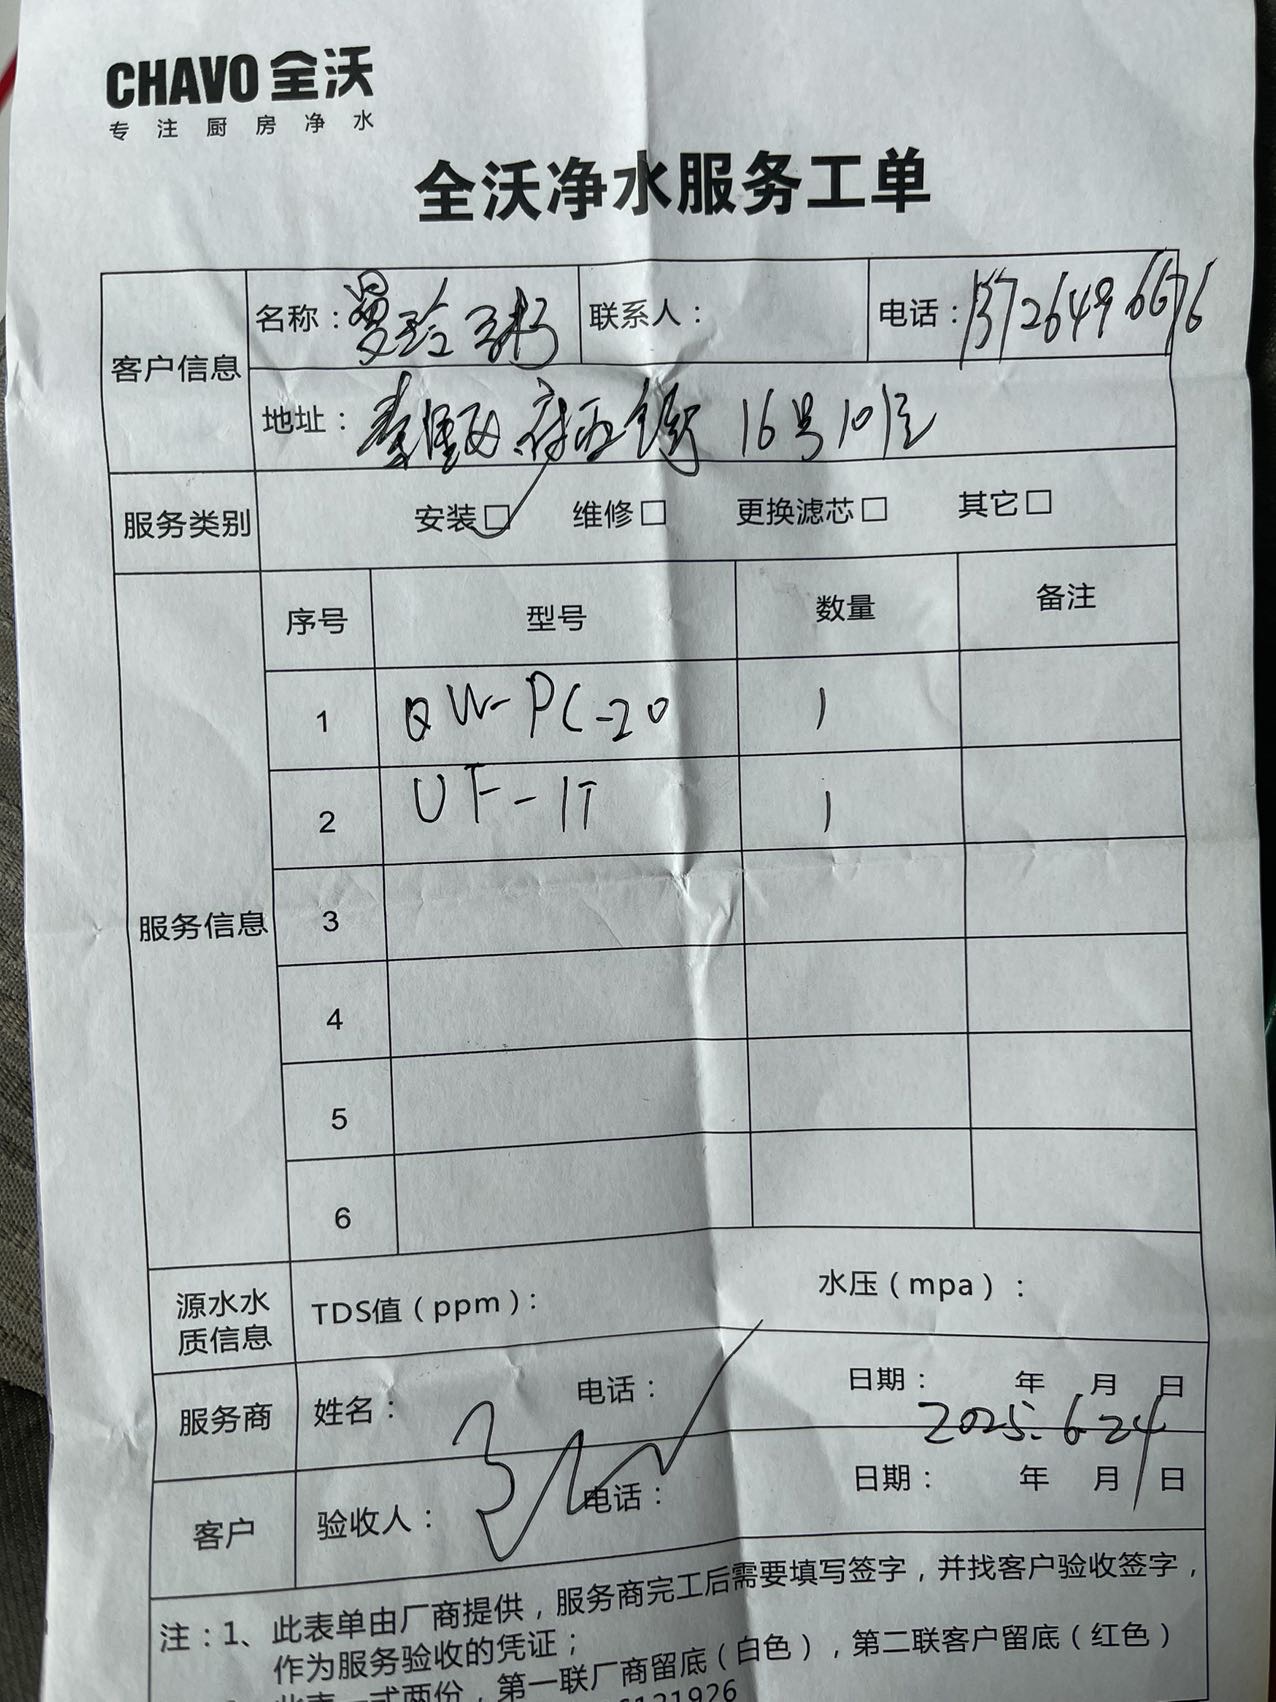 CHAVO 全沃
专注厨房净水
全沃净水服务工单
客户信息
名称：
联系人：
电话：13726496676
地址：秦虹 府西街 16号10位
服务类别
安装□ 维修□ 更换滤芯□ 其它□
服务信息
序号 型号 数量 备注
1 QW-PC-20 1
2 UF-1T 1
3
4
5
6
源水水质信息
TDS值（ppm）： 水压（mpa）：
服务商 姓名： 电话： 日期： 年 月 日
2025.6.24
客户 验收人： 电话： 日期： 年 月 日
注：1、此表单由厂商提供，服务商完工后需要填写签字，并找客户验收签字，
作为服务验收的凭证；
此表一式两份，第一联厂商留底（白色），第二联客户留底（红色）
6121926